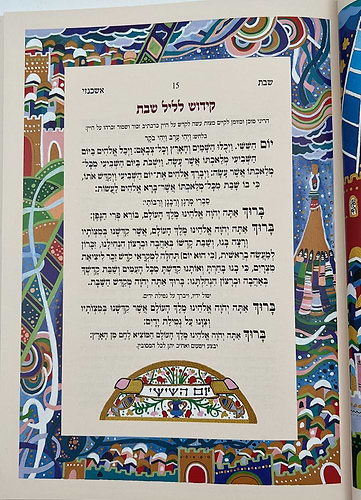 שבת
15
אשכנזי
קידוש לליל שבת
הריני מוכן ומזומן לקיים מצות עשה לקדש על היין כדכתיב זכור ושמור וברוך על היין:
בלחש: ויהי ערב ויהי בקר
יוֹם הַשִּׁשִּׁי. וַיְכֻלּוּ הַשָּׁמַיִם וְהָאָרֶץ וְכָל צְבָאָם: וַיְכַל אֱלֹהִים בַּיּוֹם
הַשְּׁבִיעִי מְלַאכְתּוֹ אֲשֶׁר עָשָׂה. וַיִּשְׁבֹּת בַּיּוֹם הַשְּׁבִיעִי מִכָּל־
מְלַאכְתּוֹ אֲשֶׁר עָשָׂה: וַיְבָרֶךְ אֱלֹהִים אֶת־יוֹם הַשְּׁבִיעִי וַיְקַדֵּשׁ אֹתוֹ.
כִּי בוֹ שָׁבַת מִכָּל־מְלַאכְתּוֹ אֲשֶׁר־בָּרָא אֱלֹהִים לַעֲשׂוֹת:
סַבְרִי מָרָנָן וְרַבָּנָן וְרַבּוֹתַי:
בָּרוּךְ אַתָּה יְהֹוָה אֱלֹהֵינוּ מֶלֶךְ הָעוֹלָם, בּוֹרֵא פְּרִי הַגָּפֶן:
בָּרוּךְ אַתָּה יְהֹוָה אֱלֹהֵינוּ מֶלֶךְ הָעוֹלָם, אֲשֶׁר קִדְּשָׁנוּ בְּמִצְוֹתָיו
וְרָצָה בָנוּ, וְשַׁבַּת קָדְשׁוֹ בְּאַהֲבָה וּבְרָצוֹן הִנְחִילָנוּ, זִכָּרוֹן
לְמַעֲשֵׂה בְרֵאשִׁית, (כִּי הוּא יוֹם) תְּחִלָּה לְמִקְרָאֵי קֹדֶשׁ זֵכֶר לִיצִיאַת
מִצְרָיִם, כִּי בָנוּ בָחַרְתָּ וְאוֹתָנוּ קִדַּשְׁתָּ מִכָּל הָעַמִּים וְשַׁבַּת קָדְשְׁךָ
בְּאַהֲבָה וּבְרָצוֹן הִנְחַלְתָּנוּ: בָּרוּךְ אַתָּה יְהֹוָה מְקַדֵּשׁ הַשַּׁבָּת.
יטול ידיו, ויברך על נטילת ידים.
בָּרוּךְ אַתָּה יְהֹוָה אֱלֹהֵינוּ מֶלֶךְ הָעוֹלָם אֲשֶׁר קִדְּשָׁנוּ בְּמִצְוֹתָיו
וְצִוָּנוּ עַל נְטִילַת יָדָיִם:
בָּרוּךְ אַתָּה יְהֹוָה אֱלֹהֵינוּ מֶלֶךְ הָעוֹלָם הַמּוֹצִיא לֶחֶם מִן הָאָרֶץ:
יבצע ויטעום ואח״כ יתן לכל המסובין.
יום הששי